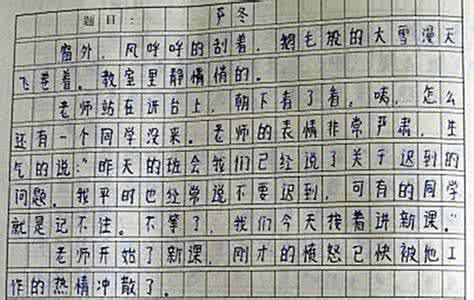 题目：严冬
窗外，风呼呼的刮着，鹅毛般的大雪漫天
飞卷着。教室里静悄悄的。
老师站在讲台上，朝下看了看，咦，怎么
还有一个同学没来。老师的表情非常严肃，生
气的说："昨天的班会我们已经说了关于迟到的
问题。我平时也经常说不要迟到，可有的同学
就是记不住。不等了，我们今天接着讲新课。"
老师开始了新课，刚才的愤怒已快被他工
作的热情冲散了。